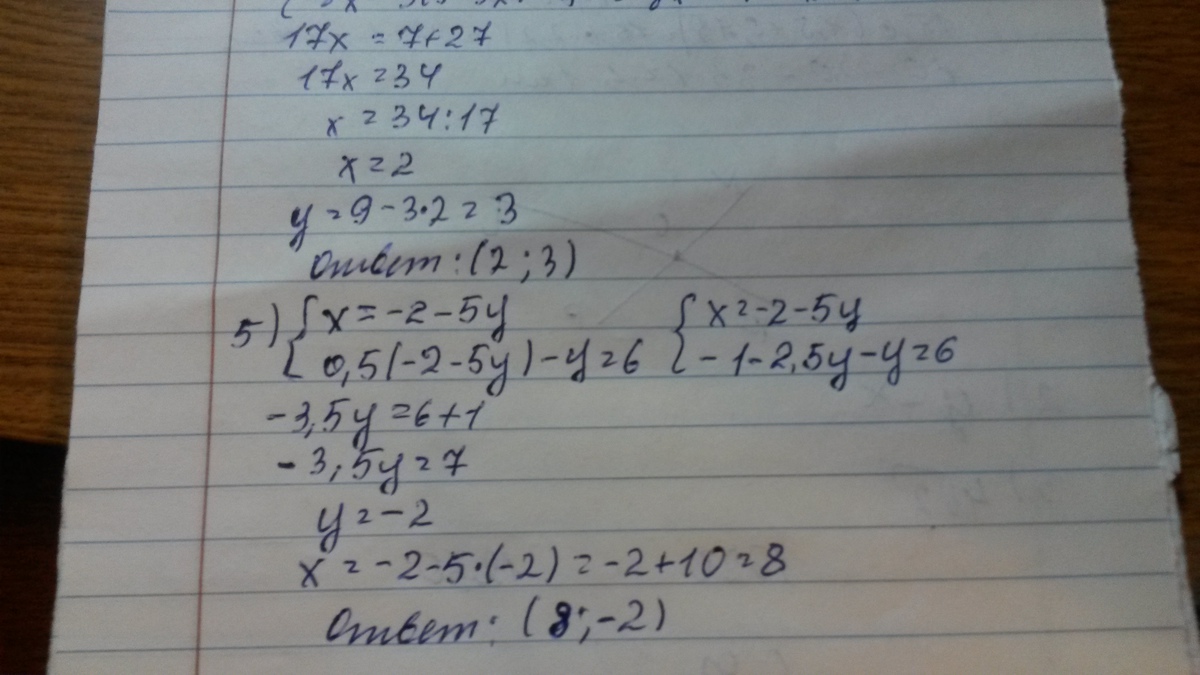 17x = 7+27
17x = 34
x = 34:17
x = 2
y = 9 - 3·2 = 3
Ответ: (2; 3)
5) { x = -2-5y { x = -2-5y
0,5(-2-5y)-y=6 -1-2,5y-y=6
-3,5y = 6+1
-3,5y = 7
y = -2
x = -2-5·(-2) = -2+10 = 8
Ответ: (8; -2)